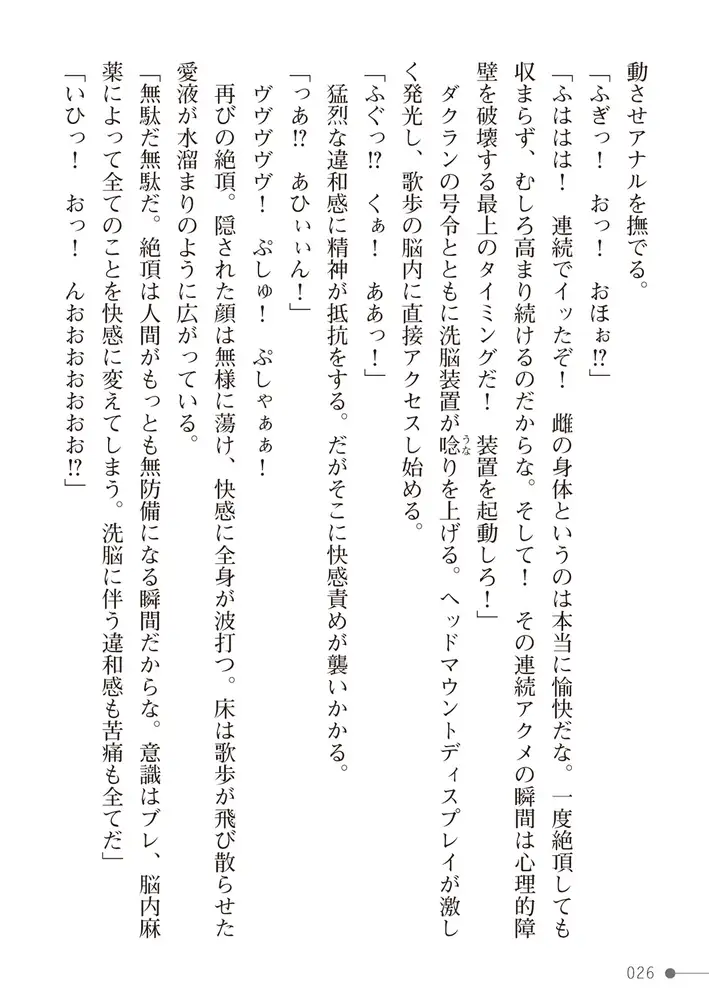 動させアナルを撫でる。
「ふぎっ！　おっ！　おほぉ!?」
「ふははは！　連続でイッたぞ！　雌の身体というのは本当に愉快だな。一度絶頂しても
収まらず、むしろ高まり続けるのだからな。そして！　その連続アクメの瞬間は心理的障
壁を破壊する最上のタイミングだ！　装置を起動しろ！」
ダクランの号令とともに洗脳装置が唸りを上げる。ヘッドマウントディスプレイが激し
うな
く発光し、歌歩の脳内に直接アクセスし始める。
「ふぐっ!?　くぁ！　ああっ！」
猛烈な違和感に精神が抵抗をする。だがそこに快感責めが襲いかかる。
「っあ!?　あひぃぃん！」
ヴヴヴヴヴ！　ぷしゅ！　ぷしゃぁぁ！
再びの絶頂。隠された顔は無様に蕩け、快感に全身が波打つ。床は歌歩が飛び散らせた
愛液が水溜まりのように広がっている。
「無駄だ無駄だ。絶頂は人間がもっとも無防備になる瞬間だからな。意識はブレ、脳内麻
薬によって全てのことを快感に変えてしまう。洗脳に伴う違和感も苦痛も全てだ」
「いひっ！　おっ！　んおおおおおおお!?」
026